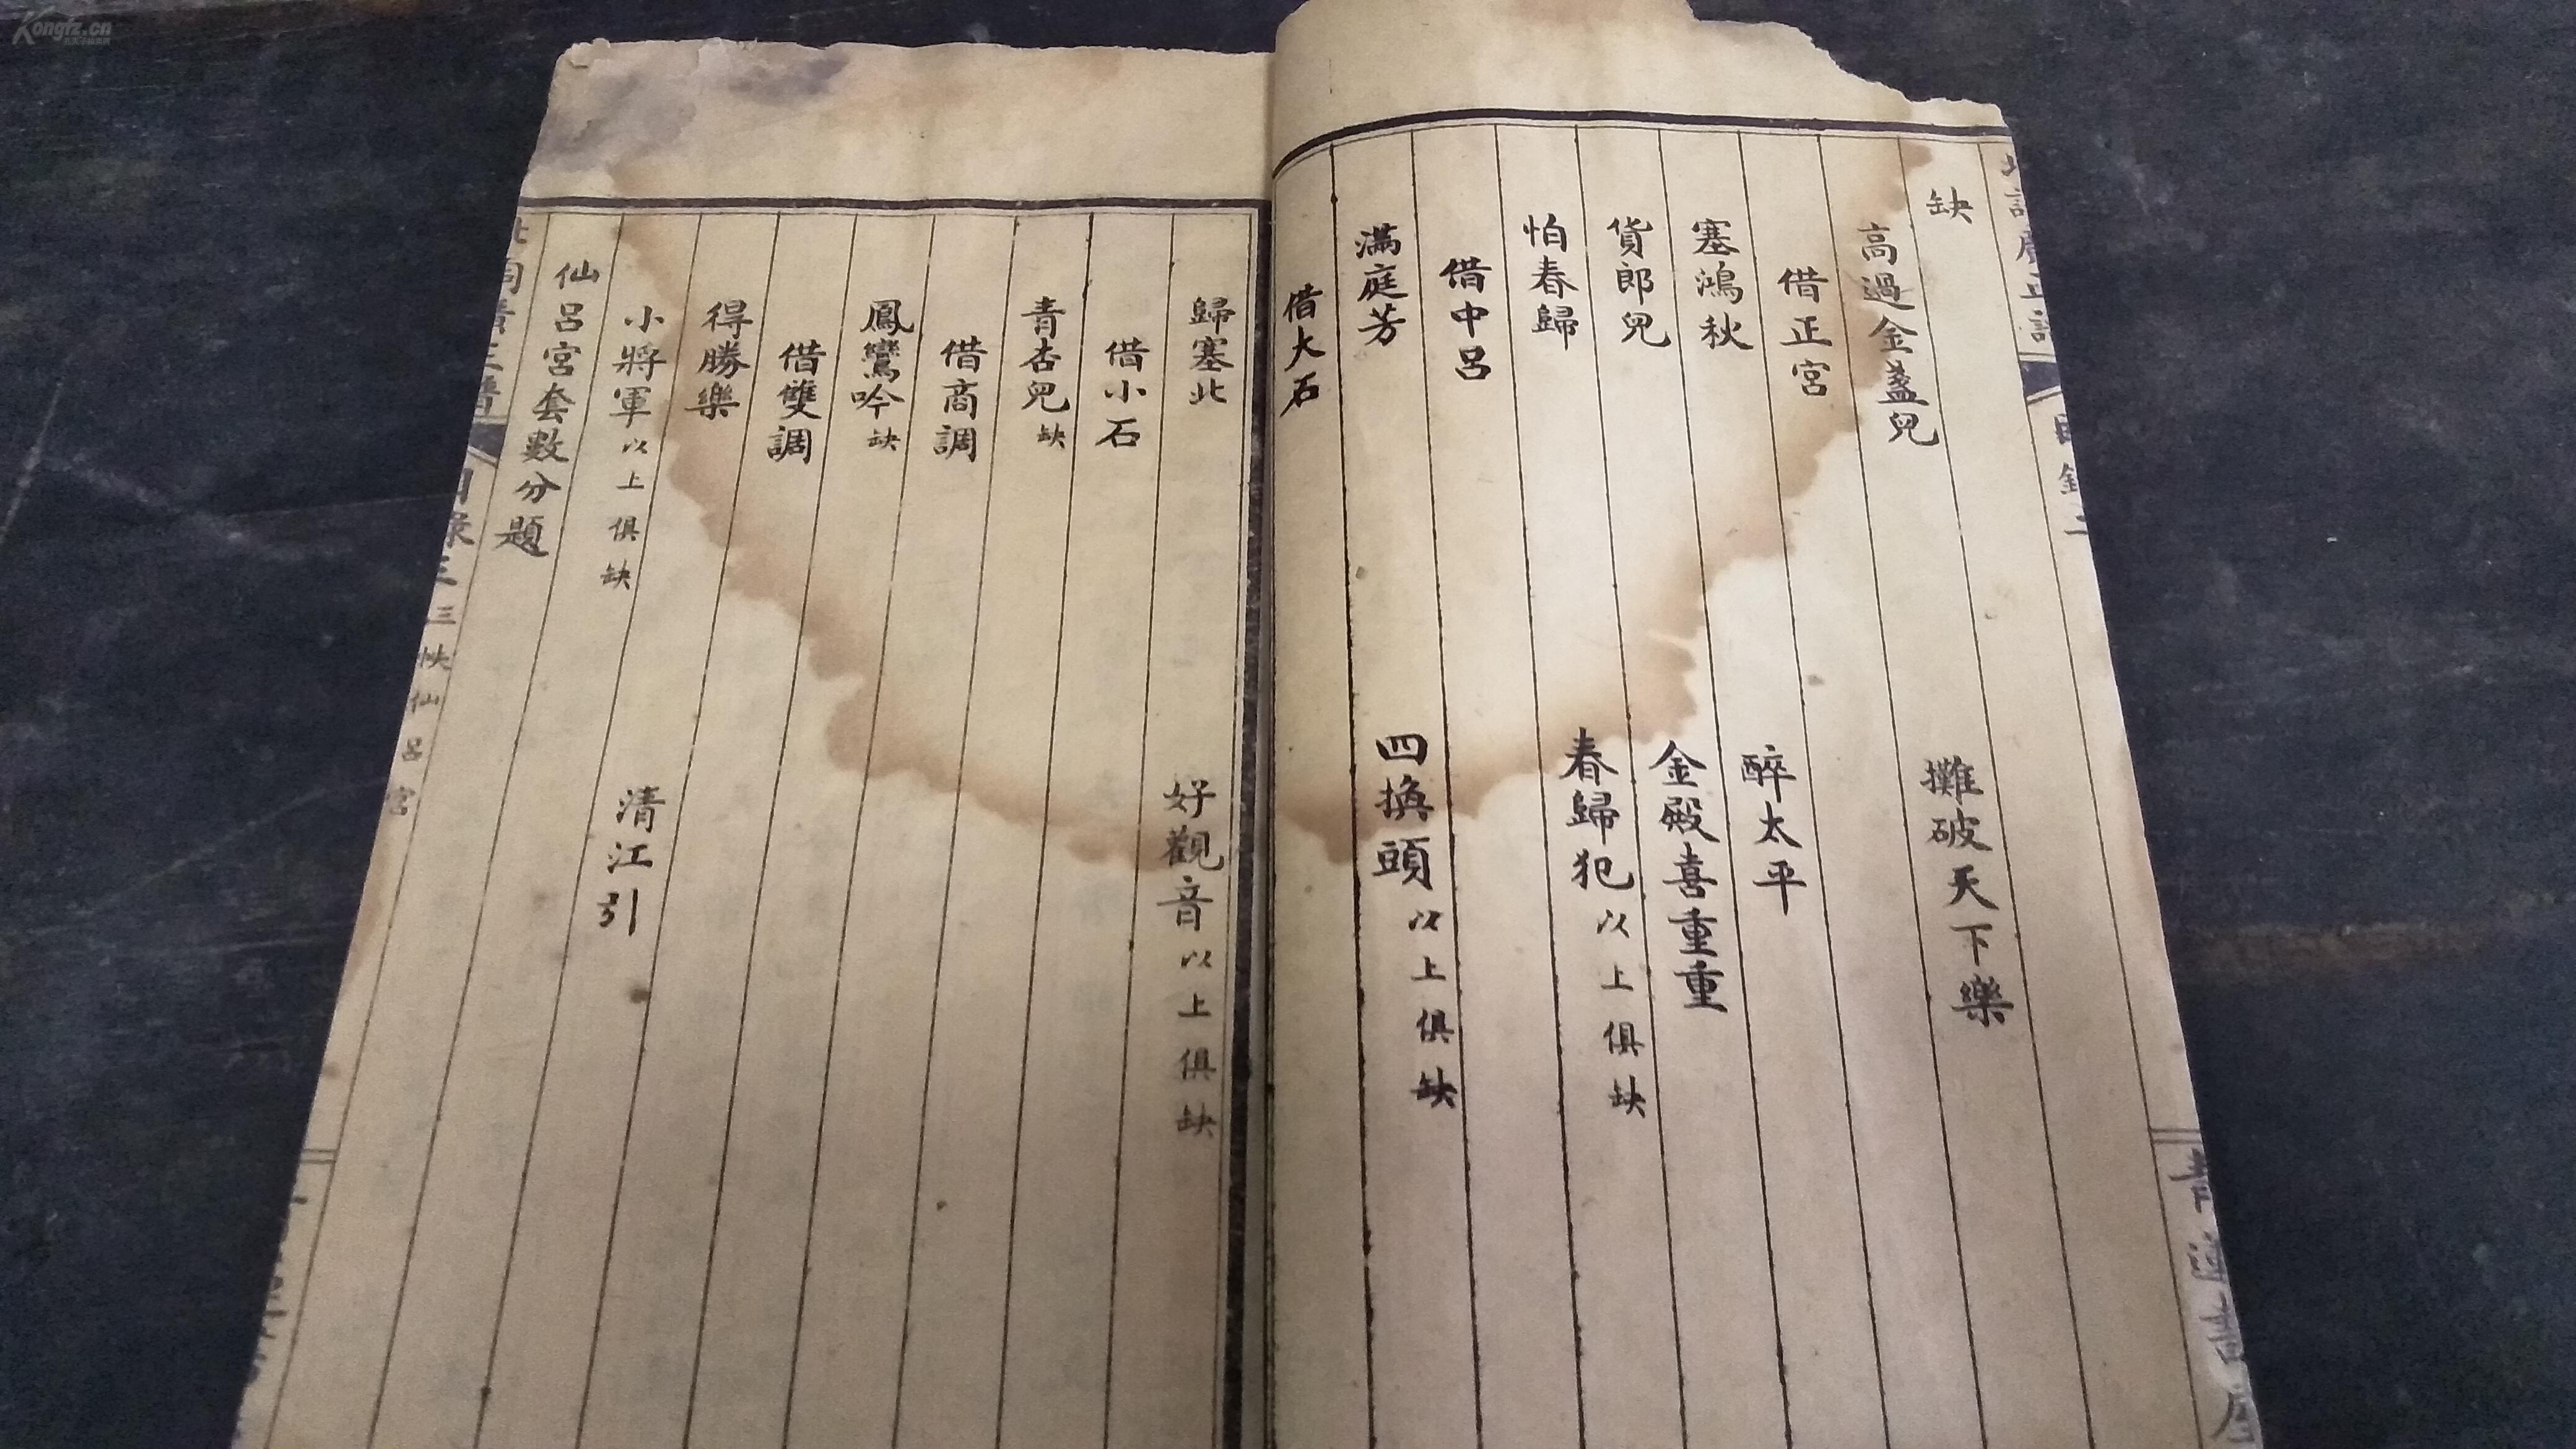 缺
高過金盞兒 攤破天下樂
借正宮
塞鴻秋 醉太平
貨郎兒 金殿喜重重
怕春歸 春歸犯以上俱缺
借中呂
滿庭芳 四換頭以上俱缺
借大石
歸塞北 好觀音以上俱缺
借小石
青杏兒缺
借商調
鳳鸞吟缺
借雙調
得勝樂 清江引
小將軍以上俱缺
仙呂宮套數分題
目錄三 三帙仙呂宮
Kongfz.cn